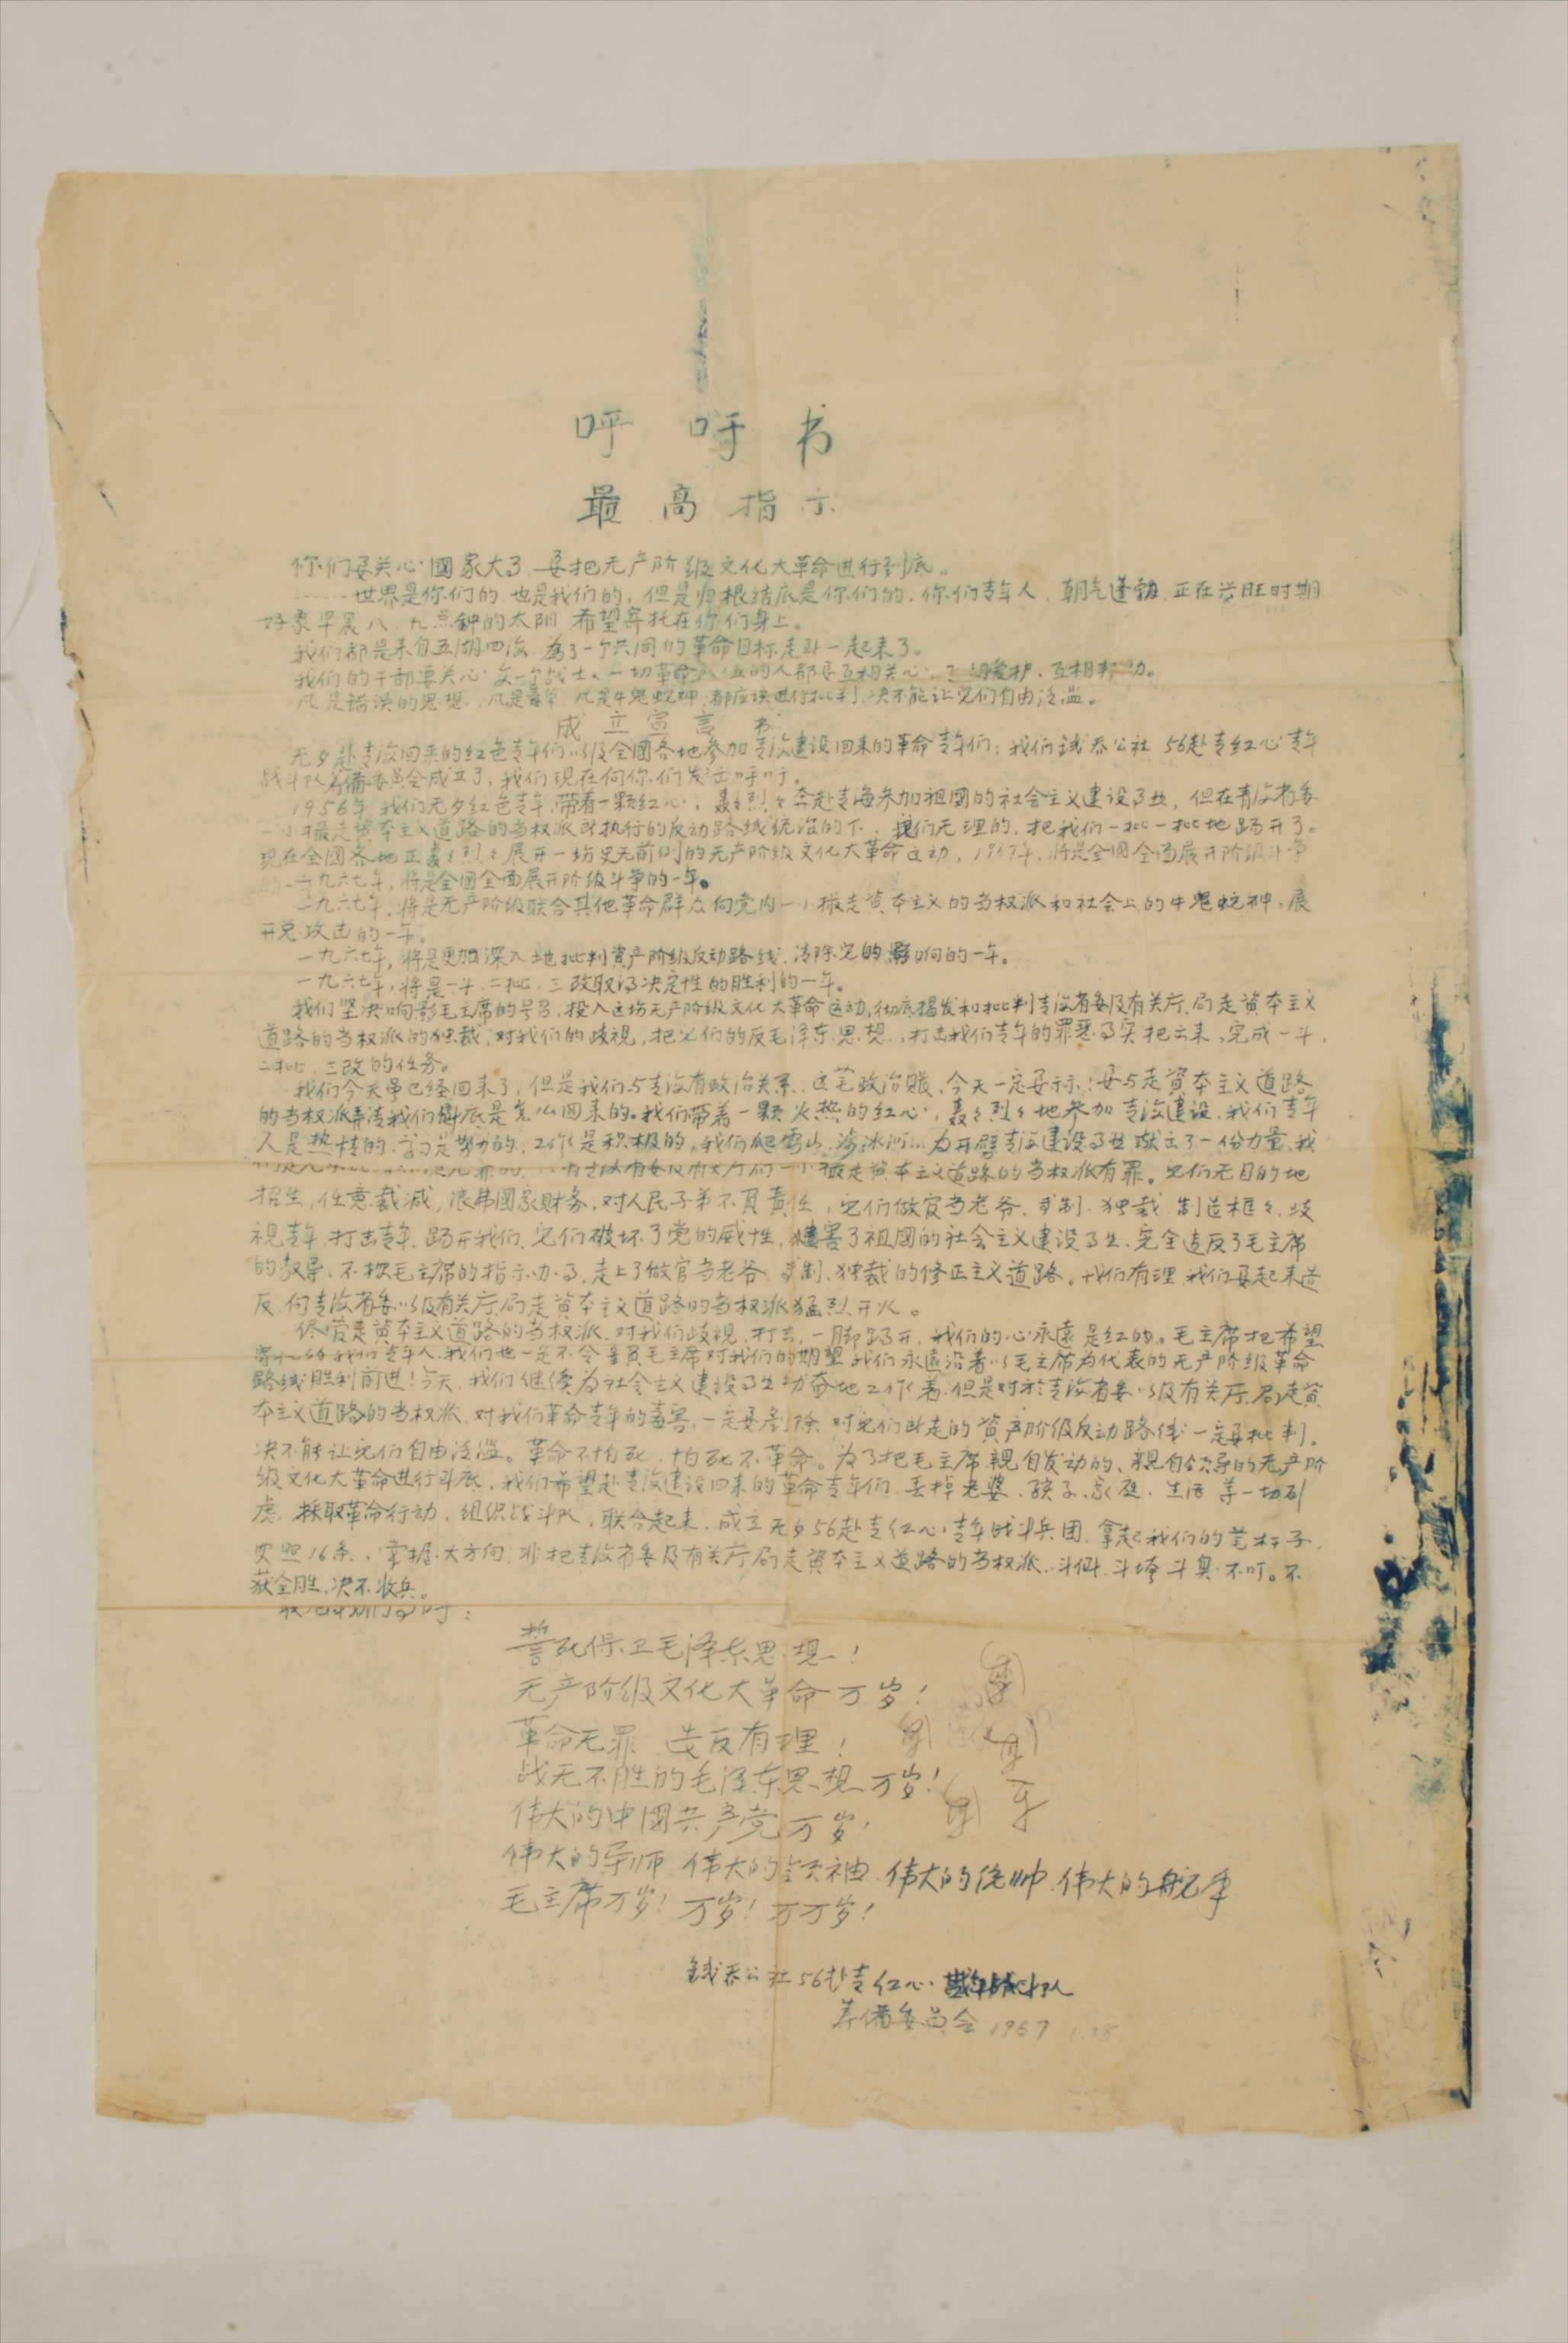 呼吁书
最高指示
你们要关心國家大事、要把无产阶级文化大革命进行到底。
……世界是你们的 也是我们的，但是归根结底是你们的，你们青年人、朝气蓬勃 正在兴旺时期
好象早晨八、九点鈡的太阳 希望寄托在你们身上。
我们都是来自五湖四海 為了一个共同的革命目标走到一起来了。
我们的干部要关心每一个战士、一切革命队伍的人都要互相关心，互相爱护，互相帮助。
凡是错误的思想，凡是毒草 凡是牛鬼蛇神，都应该进行批判，决不能让它们自由泛滥。
成立宣言书
无夕赴青海回来的红色青年们以及全國各地参加青海建设回来的革命青年们：我们錢桥公社 56赴青红心青年
战斗队筹備委员会成立了，我们现在向你们发出呼吁。
1956年 我们无夕红色青年，带着一颗红心，轰轰烈々奔赴青海参加祖國的社会主义建设事业，但在青海省委
一小撮走資本主义道路的当权派所执行的反动路线统治的下，他们无理的，把我们一批一批地踢开了。
现在全國各地正轰々烈々展开一场史无前例的无产阶级文化大革命运动，1967年，将是全國全面展开阶级斗争
的一九六七年，将是全國全面展开阶级斗争的一年。
一九六七年，将是无产阶级联合其他革命群众向党内一小撮走資本主义的当权派和社会上的牛鬼蛇神，展
开总攻击的一年。
一九六七年，将是更加深入地批判資产阶级反动路线，清除它的影响的一年。
一九六七年，将是一斗、二批、三改取得决定性的胜利的一年。
我们坚决响影毛主席的号召，投入这场无产阶级文化大革命运动，彻底揭发和批判青海省委及有关厅、局走資本主义
道路的当权派的独裁，对我们的歧視，把它们的反毛泽东思想，打击我们青年的罪恶事实把出来，完成一斗，
二批、三改的任务。
我们今天虽已经回来了，但是我们与青海有政治关系，这笔政治账，今天一定要示！要与走資本主义道路
的当权派弄清我们倒底是怎么回来的。我们带着一颗火热的红心，轰々烈々地参加青海建设，我们青年
人是热情的，学习是努力的，工作是积极的，我们爬雪山，涉冰河，为开闢青海建设事业献出了一份力量，我
一小撮走資本主义道路的当权派有罪。它们无目的地
招生，任意裁减，浪费國家財务，对人民子弟不負責任，它们做官当老爷、专制、独裁 制造框々、歧
視青年，打击青年，踢开我们，它们破坏了党的威性，危害了祖國的社会主义建设事业、完全违反了毛主席
的教导、不按毛主席的指示办事，走上了做官当老爷 专制、独裁的修正主义道路。我们有理 我们要起来造
反，向青海省委以及有关厅、局走資本主义道路的当权派猛烈开火。
侭管走資本主义道路的当权派，对我们歧視，打击，一脚踢开，我们的心永遠是红的。毛主席把希望
寄托给我们青年人，我们也一定不会辜負毛主席对我们的期望 我们永遠沿着以毛主席为代表的无产阶级革命
路线胜利前进！今天，我们继续为社会主义建设事业勤奋地工作着，但是对於青海省委以及有关厅、局走資
本主义道路的当权派，对我们革命青年的毒害，一定要剷除 对它们所走的資产阶级反动路线一定要批判，
决不能让它们自由泛滥。革命不怕死，怕死不革命。为了把毛主席親自发动的、親自领导的无产阶
级文化大革命进行到底，我们希望赴青海建设回来的革命青年们，丢掉老婆、孩子、家庭、生活等一切顾
虑，採取革命行动，组织战斗队，联合起来，成立无夕56赴青红心青年战斗兵团，拿起我们的笔杆子，
按照16条，掌握大方向，非把青海省委及有关厅局走資本主义道路的当权派，斗倒、斗垮斗臭 不可。不
获全胜，决不收兵。
最后我们高呼：
誓死保卫毛泽东思想！
无产阶级文化大革命万岁！
革命无罪 造反有理！
战无不胜的毛泽东思想万岁！
伟大的中國共产党万岁！
伟大的导师 伟大的领袖、伟大的统帅、伟大的舵手
毛主席万岁！万岁！万万岁！
錢桥公社56赴青红心青年战斗队
筹備委员会 1967 1.18